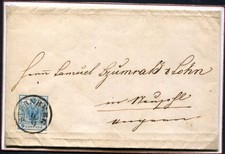 Herrn Samuel Szumrak & Sohn
in Neusohl
Ungarn